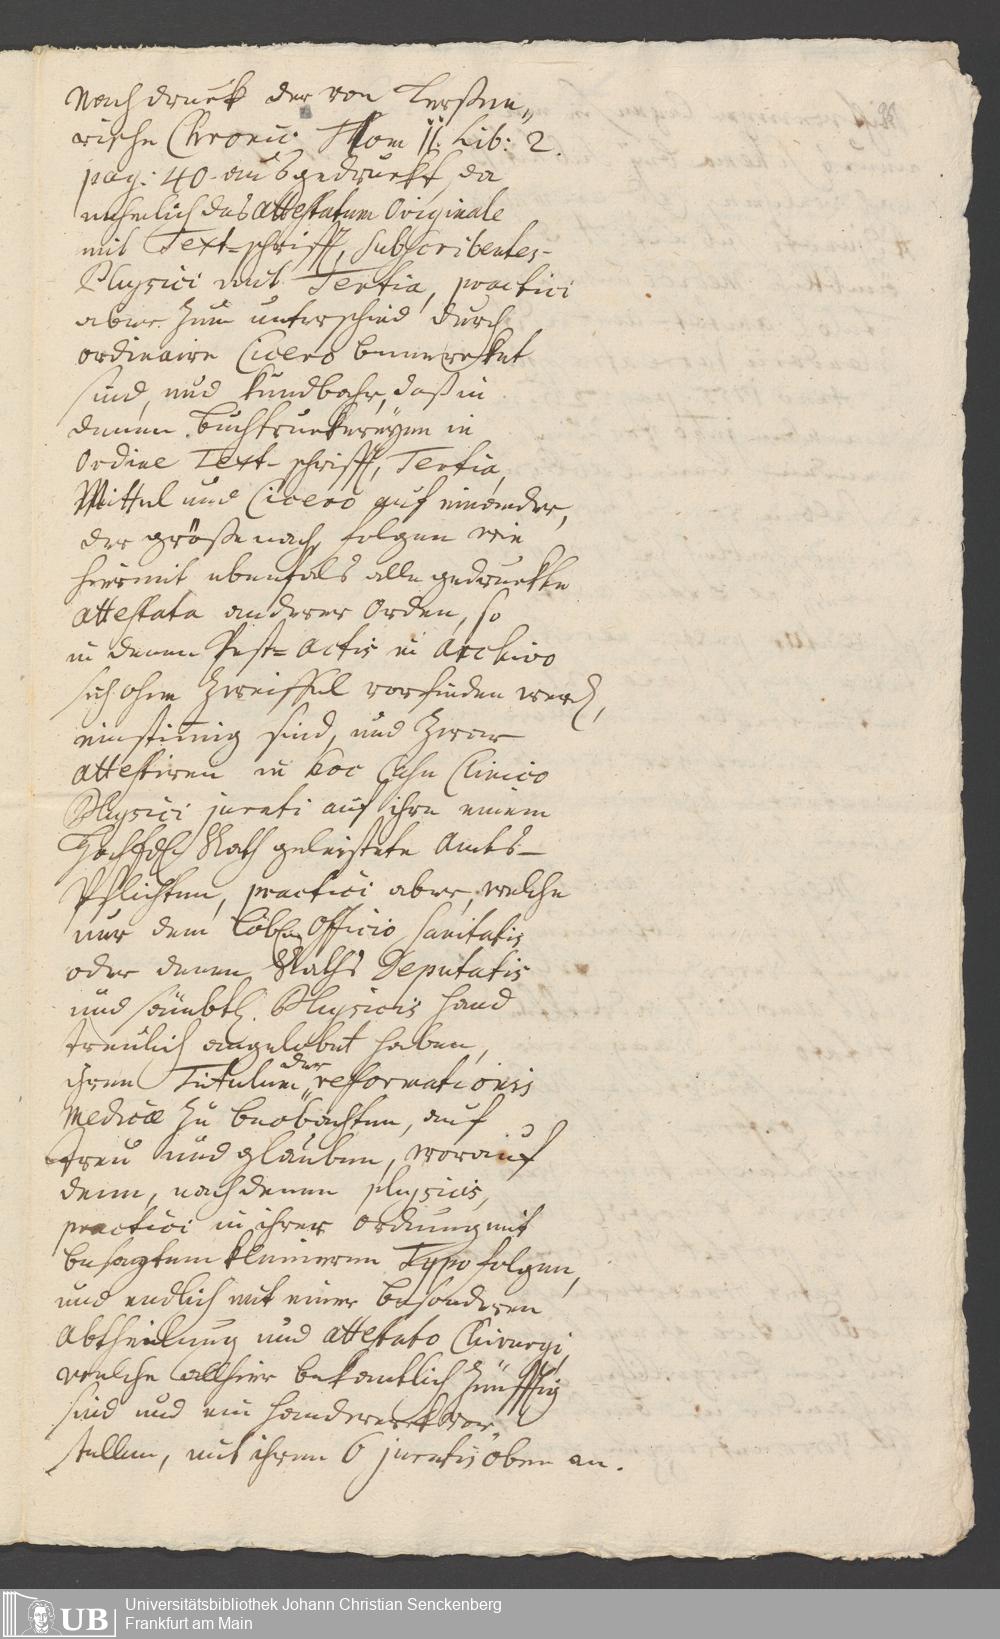 Nachdruck der von Lersner„
rische Chronic: Thom II. Lib: 2.
pag: 40. ausgedruckt, da
nehmlich das attestatum Originale
mit Text-schrifft, subscribentes-
Physici mit Tertia, practici
aber zum unterschied durch
ordinaire Cicero bemercket
sind, und kundbahr, daß in
denen Buchtruckereÿen in
Ordine Text-schrifft, Tertia,
Mittel und Cicero auf einander,
der größe nach, folgen wie
hiermit ebenfals alle gedruckte
attestata anderer Orden, so
in denen Pest= actis in Archivo
sich ohne Zweiffel vorfinden werd,
einstimig sind, und zwar
attestiren in hoc Casu Clinico
Physici jurati auf ihre einem
Rath geleistete Amts-
Pflichten, practici aber, welche
nur dem löbl. Officio Sanitatis
oder denen Raths Deputatis
und sämbtl. Physicis hand
treulich angelobet haben,
ihren Titulum der reformationis
Medicæ zu beobachten, auf
treu und glauben, worauf
denn, nach denen physicis,
practici in ihrer ordnung mit
besagtem kleineren Typo folgen,
und endlich mit einer besonderen
Abtheilung und attestato Chirurgi,
welche allhier bekantlich zünfftig
sind und ein handwerck vor„
stellen, mit ihren 6 juratis oben an.
UB
Universitätsbibliothek Johann Christian Senckenberg
Frankfurt am Main